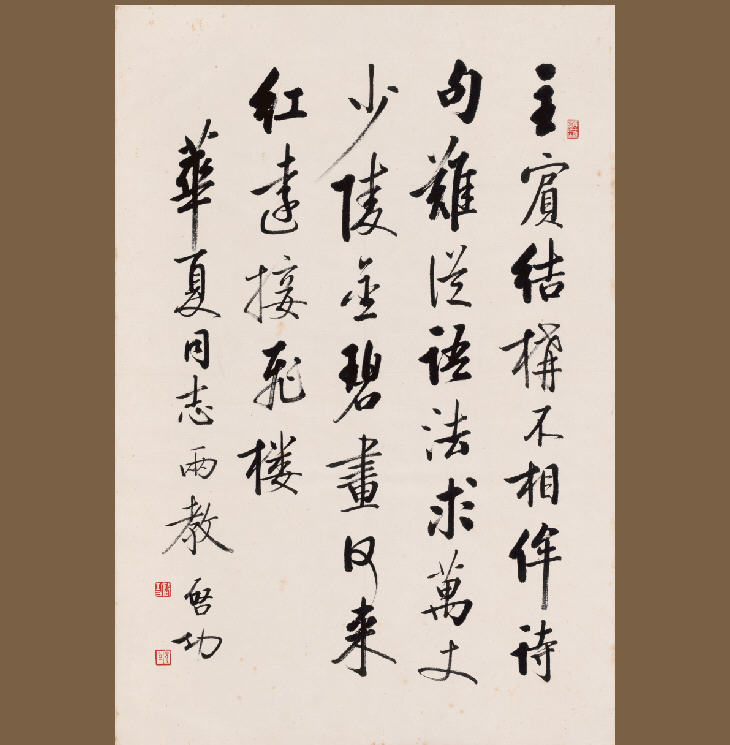 主賓結構不相侔詩
句難從語法求萬丈
少陵金碧畫何来
紅遠接飛楼
華夏同志兩教 启功